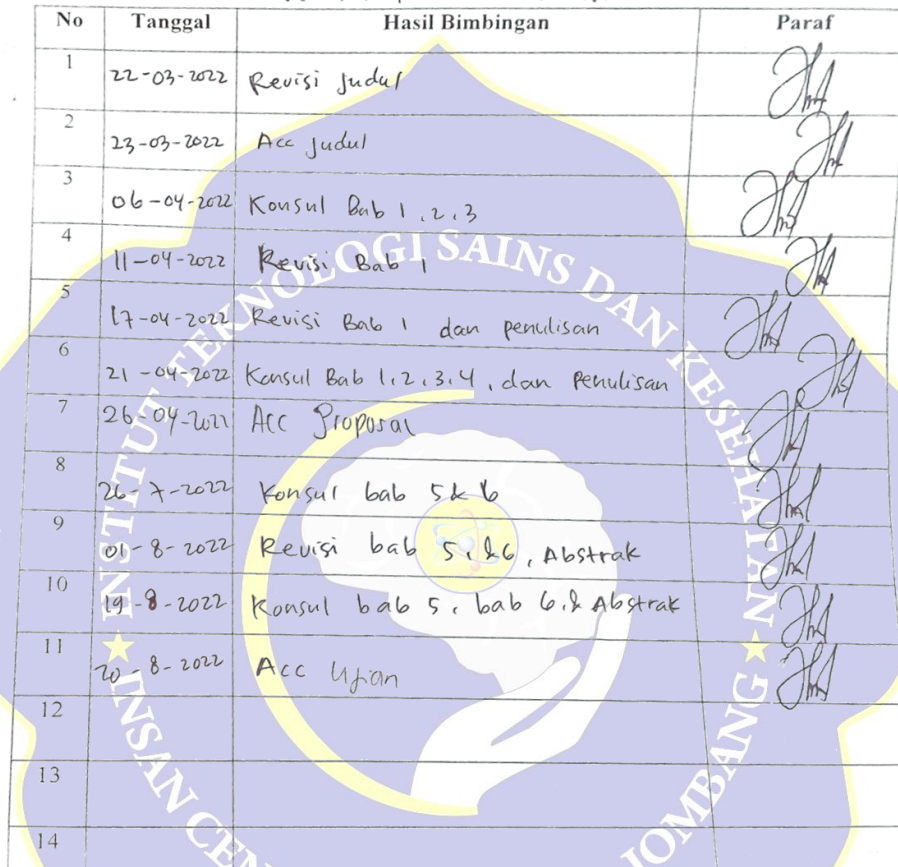 No Tanggal Hasil Bimbingan Paraf
1 22-03-2022 Revisi Judul
2 23-03-2022 Acc Judul
3 06-04-2022 Konsul Bab 1, 2, 3
4 11-04-2022 Revisi Bab 1
5 17-04-2022 Revisi Bab 1 dan penulisan
6 21-04-2022 Konsul Bab 1, 2, 3, 4, dan Penulisan
7 26-04-2022 Acc Proposal
8 26-7-2022 Konsul bab 5 & 6
9 01-8-2022 Revisi bab 5, & 6, Abstrak
10 19-8-2022 Konsul bab 5, bab 6, & Abstrak
11 20-8-2022 Acc Ujian
12
13
14
INSTITUT TEKNOLOGI SAINS DAN KESEHATAN
INSAN CEN
JOMBANG